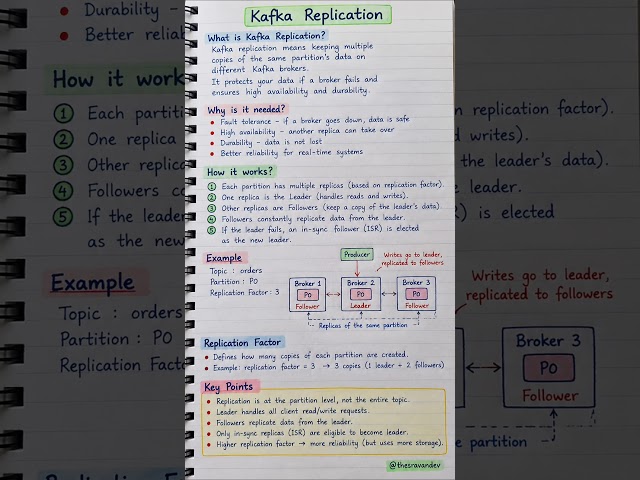 Kafka Replication
What is Kafka Replication?
Kafka replication means keeping multiple
copies of the same partition's data on
different Kafka brokers.
It protects your data if a broker fails and
ensures high availability and durability.
Why is it needed?
• Fault tolerance - if a broker goes down, data is safe
• High availability - another replica can take over
• Durability - data is not lost
• Better reliability for real-time systems
How it works?
1 Each partition has multiple replicas (based on replication factor).
2 One replica is the Leader (handles reads and writes).
3 Other replicas are Followers (keep a copy of the leader's data)
4 Followers constantly replicate data from the leader.
5 If the leader fails, an in-sync follower (ISR) is elected
as the new leader.
Example
Topic : orders
Partition : P0
Replication Factor : 3
Producer
Writes go to leader,
replicated to followers
Broker 1
P0
Follower
Broker 2
P0
Leader
Broker 3
P0
Follower
Replicas of the same partition
Replication Factor
• Defines how many copies of each partition are created.
• Example: replication factor = 3 → 3 copies (1 leader + 2 followers)
Key Points
• Replication is at the partition level, not the entire topic.
• Leader handles all client read/write requests.
• Followers replicate data from the leader.
• Only in-sync replicas (ISR) are eligible to become leader.
• Higher replication factor → more reliability (but uses more storage).
@thesravandev
Durability -
Better relia
How it works
1 Each partiti
2 One replica
3 Other replica
4 Followers co
5 If the leader
as the new
Example
Topic : orders
Partition : P0
Replication Factor
replication factor).
writes).
the leader's data).
leader.
) is elected
Writes go to leader,
replicated to followers
Broker 3
P0
Follower
partition